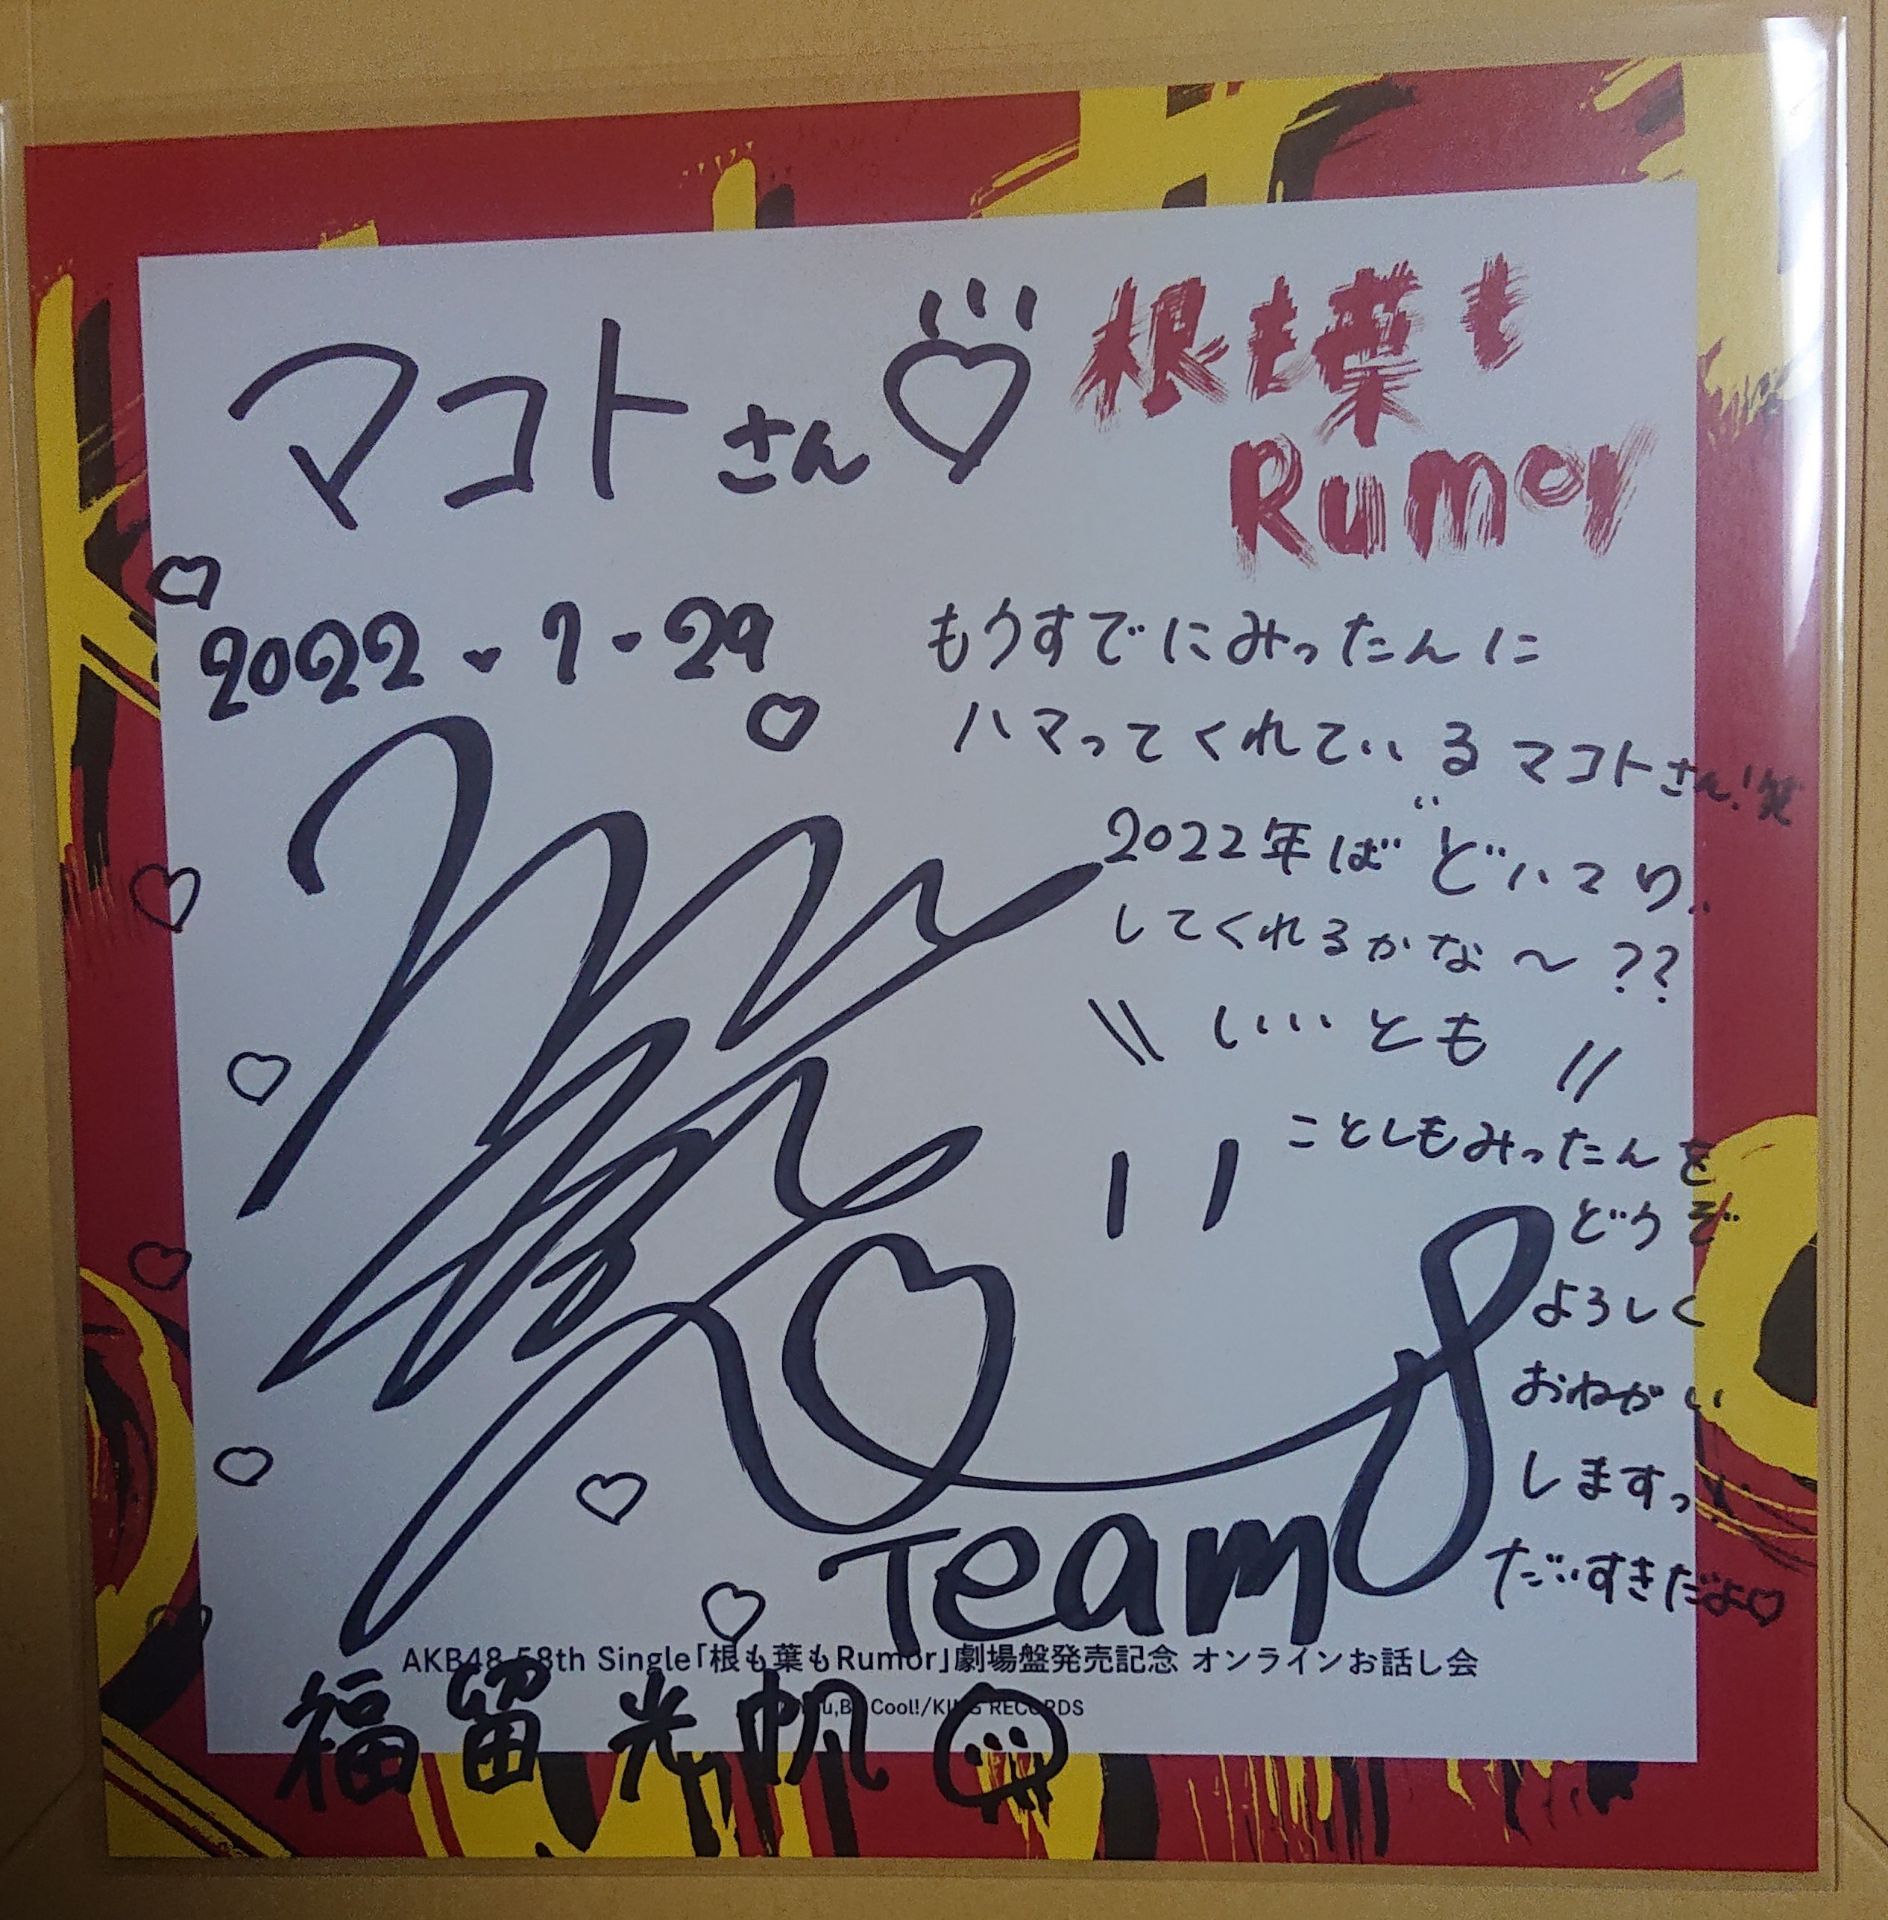 マコトさん♡
根も葉も
Rumor
2022.1.29
もうすでにみったんに
ハマってくれているマコトさん!笑
2022年は"どハマり"
してくれるかな〜??
\\ いいとも //
ことしもみったんを
どうぞ
よろしく
おねがい
しますっ!
だいすきだよ♡
Team 8
AKB48 58th Single「根も葉もRumor」劇場盤発売記念 オンラインお話し会
Cool!/KING RECORDS
福留光帆